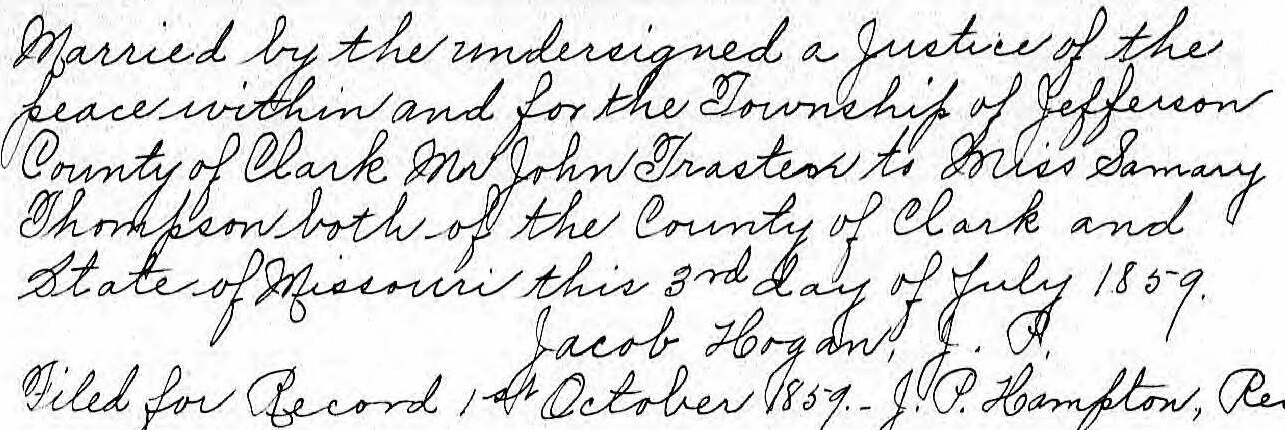 Married by the undersigned a Justice of the
peace within and for the Township of Jefferson
County of Clark Mr John Trasten to Miss Samary
Thompson both of the County of Clark and
State of Missouri this 3rd day of July 1859.
Jacob Hogan, J. P.
Filed for Record 1st October 1859.- J. P. Hampton, Rec